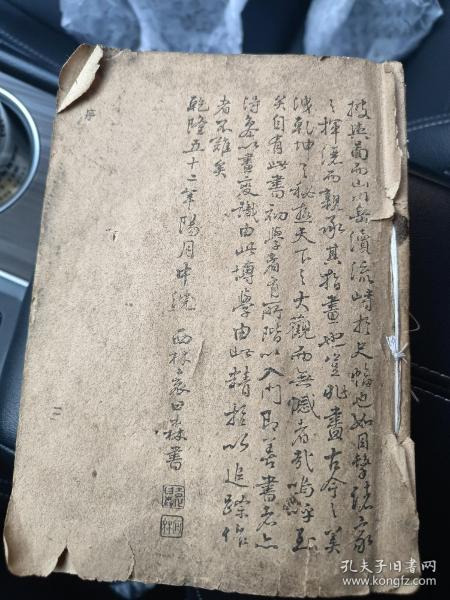 披此圖而山川岳瀆流峙於尺幅也如目擊諸家
之揮洒而親承其指畫也豈非畫古今之美
洩乾坤之秘極天下之大觀而無憾者哉嗚呼
矣自有此書初學者有所階以入門即善書者亦
得各以畫度識由此博學由此精推以追踪作
者不難矣
乾隆五十二年陽月中浣 西林袁日森書
序
二
孔夫子旧书网
www.kongfz.com